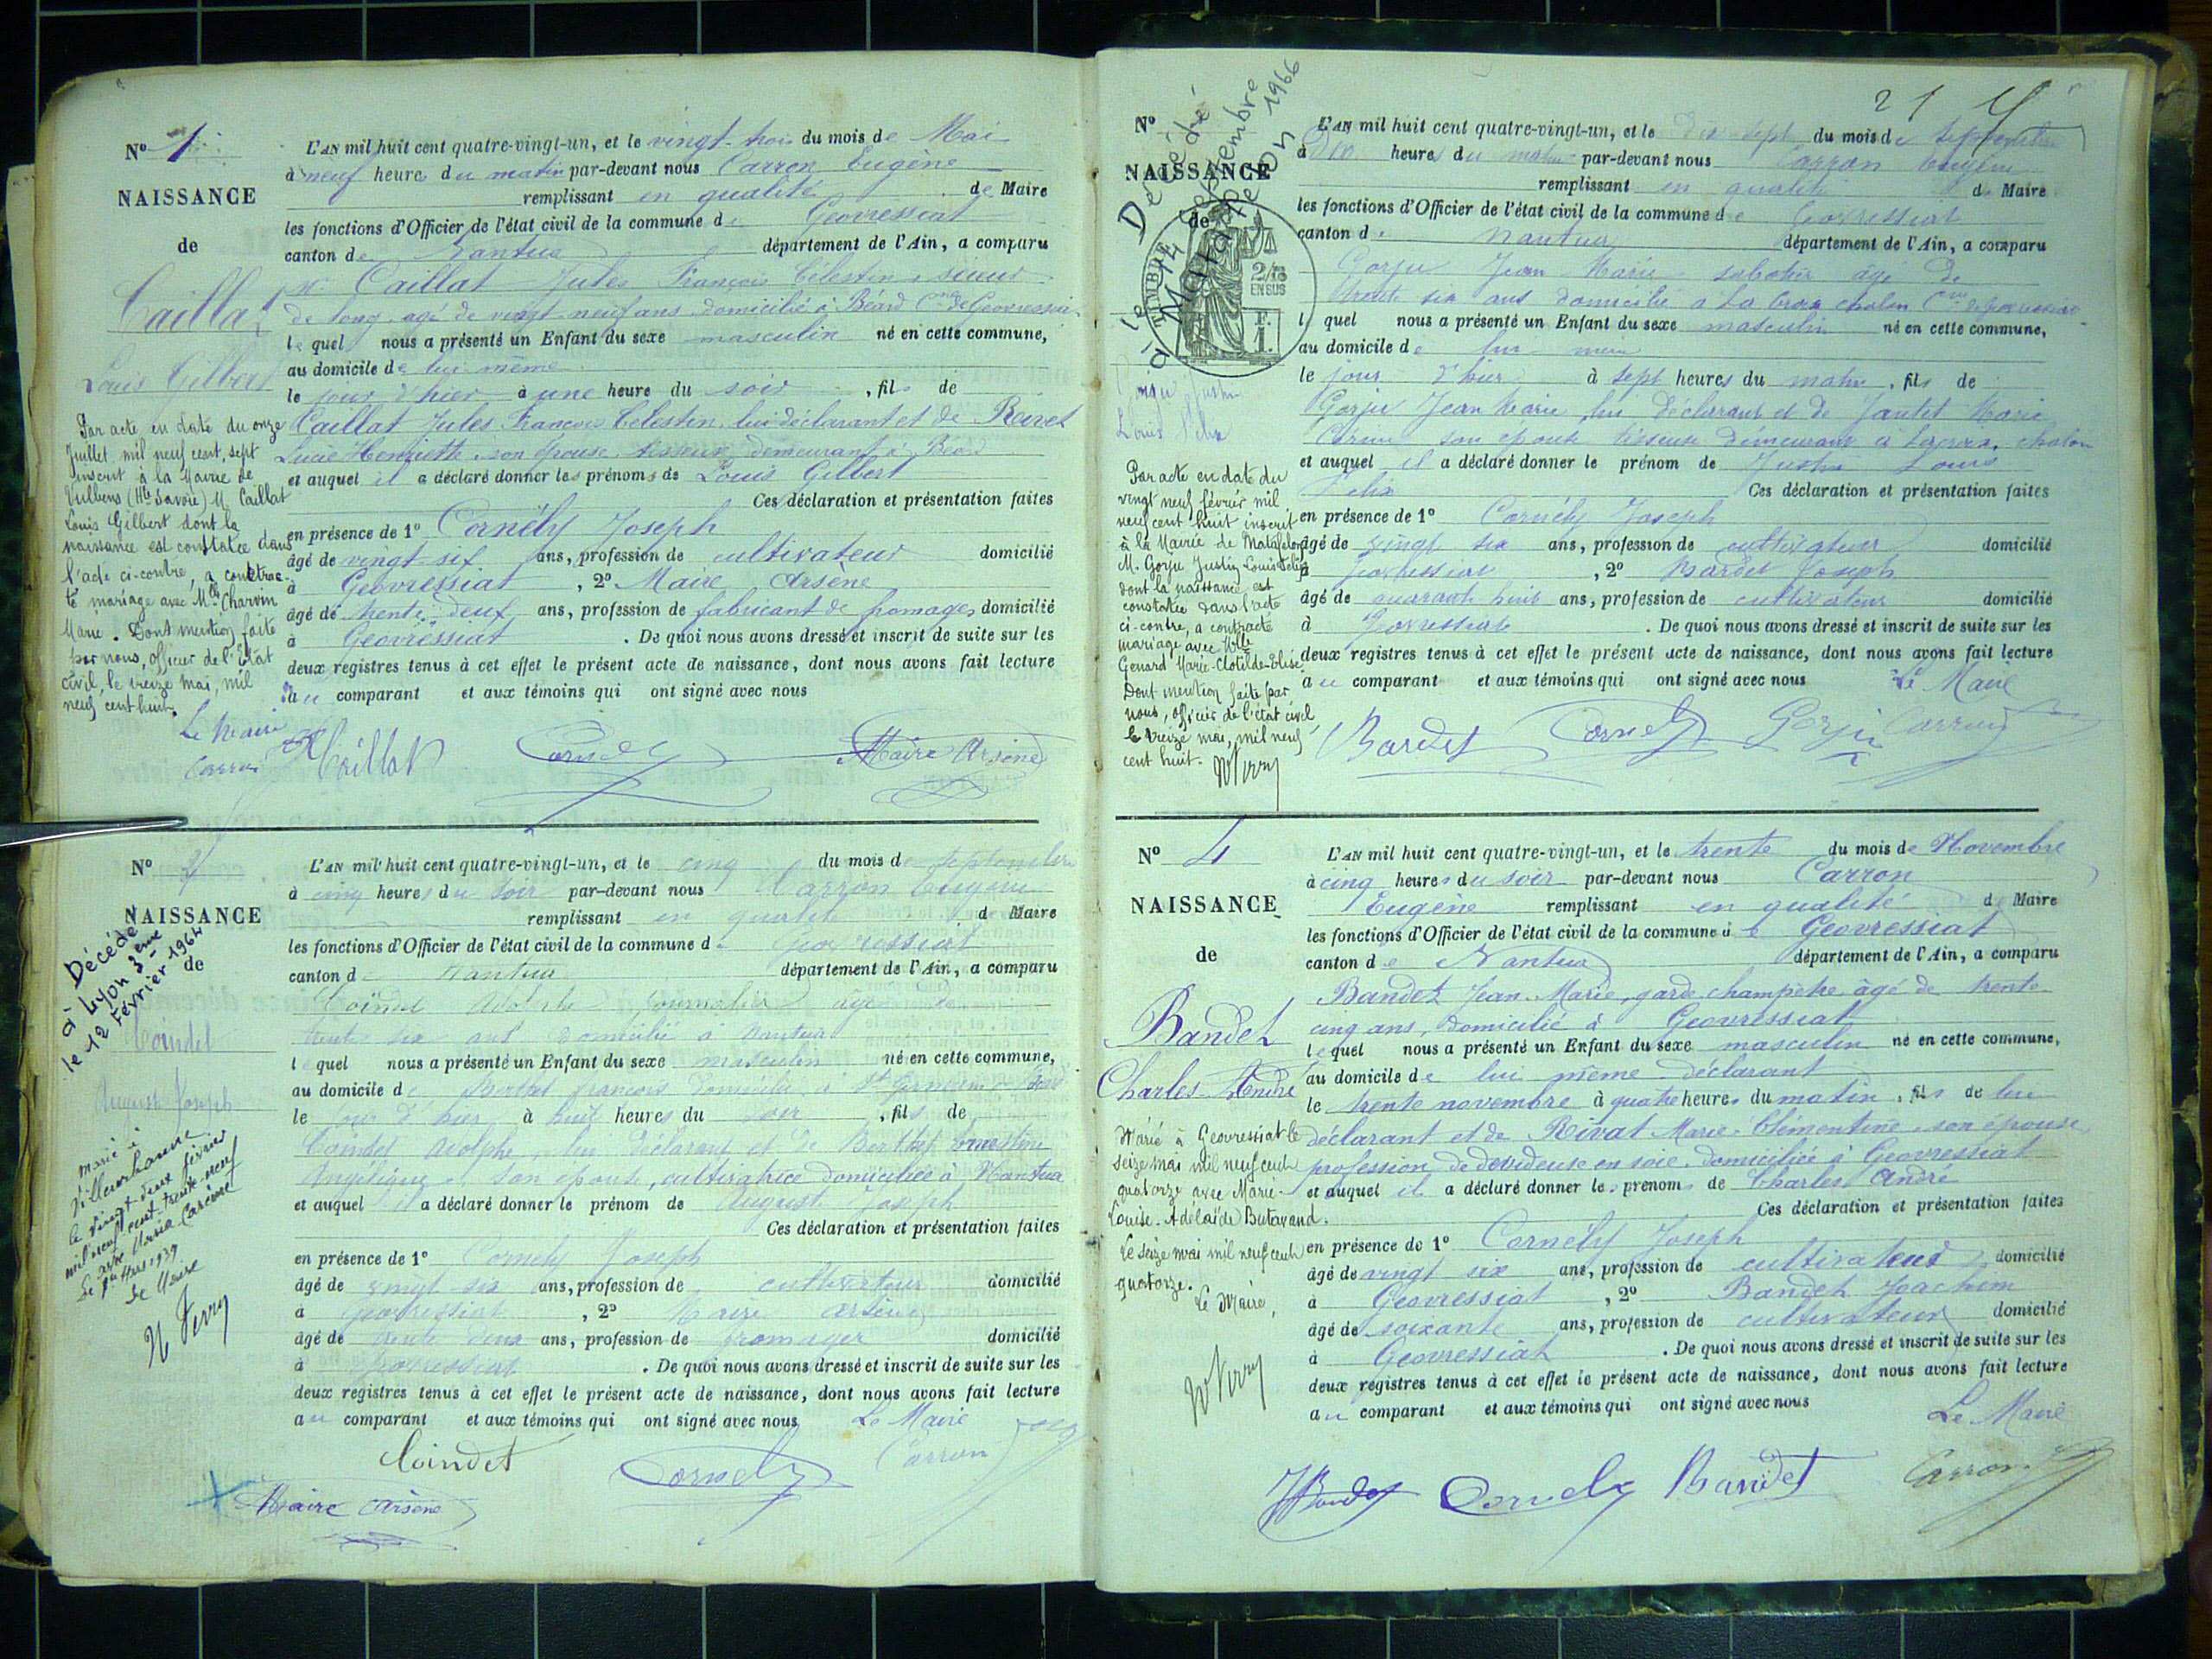 N° 1
NAISSANCE
de
Caillat
Louis Gilbert
Par acte en date du onze
Juillet mil neuf cent sept
inscrit à la Mairie de
Vulbens (Hte Savoie) M. Caillat
Louis Gilbert dont la
naissance est constatée dans
l'acte ci-contre, a contrac-
té mariage avec Mlle Charvin
Marie. Dont mention faite
par nous, officier de l'Etat
civil, le treize mai, mil
neuf cent huit.
L'AN mil huit cent quatre-vingt-un, et le vingt-trois du mois de Mai
à neuf heure du matin par-devant nous Carron Eugène
remplissant en qualité de Maire
les fonctions d'Officier de l'état civil de la commune de Geovressiat
canton de Nantua département de l'Ain, a comparu
Caillat Jules François Célestin, sieur
de long, agé de vingt-neuf ans domicilié à Béard Cne de Geovressiat
lequel nous a présenté un Enfant du sexe masculin né en cette commune,
au domicile de lui même
le jour d'hier à une heure du soir, fils de
Caillat Jules François Célestin, lui déclarant et de
Lucie Henriette son épouse, demeurant à Béard
et auquel il a déclaré donner les prénoms de Louis Gilbert
Ces déclaration et présentation faites
en présence de 1° Cornély Joseph
âgé de vingt six ans, profession de cultivateur domicilié
à Geovressiat, 2° Maire Arsène
âgé de trente deux ans, profession de fabricant de fromages domicilié
à Geovressiat. De quoi nous avons dressé et inscrit de suite sur les
deux registres tenus à cet effet le présent acte de naissance, dont nous avons fait lecture
au comparant et aux témoins qui ont signé avec nous
Le Maire
Carron Caillat Cornély Maire Arsène
N° 2
NAISSANCE
de
Décédé
à Lyon 3ème
le 12 Février 1964
Coindet
August Joseph
Marié à
Villeurbanne
le vingt-deux février
mil neuf cent trente-neuf
avec Maria Carême
Le 1er Mars 1939
Le Maire
L'AN mil huit cent quatre-vingt-un, et le cinq du mois de Septembre
à cinq heures du soir par-devant nous Carron Eugène
remplissant en qualité d Maire
les fonctions d'Officier de l'état civil de la commune de Geovressiat
canton de Nantua département de l'Ain, a comparu
Coindet Adolphe, journalier âgé de
trente six ans domicilié à Nantua
lequel nous a présenté un Enfant du sexe masculin né en cette commune,
au domicile de Berthet françois domicilié à St Germain de
le jour d'hier à huit heures du soir, fils de
Coindet Adolphe, lui déclarant et de Berthet Ernestine
Angélique son épouse, cultivatrice domiciliée à Nantua
et auquel il a déclaré donner le prénom de August Joseph
Ces déclaration et présentation faites
en présence de 1° Cornély Joseph
âgé de vingt six ans, profession de cultivateur domicilié
à Geovressiat, 2° Maire Arsène
âgé de trente deux ans, profession de fromager domicilié
à Geovressiat. De quoi nous avons dressé et inscrit de suite sur les
deux registres tenus à cet effet le présent acte de naissance, dont nous avons fait lecture
au comparant et aux témoins qui ont signé avec nous Le Maire
Coindet Cornély Carron
Maire Arsène
21
N°
NAISSANCE
de
Décédé
à Matafelon
le 14 Septembre 1966
TIMBRE
2/10 EN SUS
1 F.
Gorju Justin
Louis Félix
Par acte en date du
vingt neuf février mil
neuf cent huit inscrit
à la Mairie de Matafelon
M. Gorju Justin Louis Félix
dont la naissance est
constatée dans l'acte
ci-contre, a contracté
mariage avec Mlle
Genard Marie-Clotilde-Elise
Dont mention faite par
nous, officier de l'état civil
le treize mai, mil neuf
cent huit.
L'AN mil huit cent quatre-vingt-un, et le dix-sept du mois de Septembre
à dix heures du matin par-devant nous Carron Eugène
remplissant en qualité d Maire
les fonctions d'Officier de l'état civil de la commune de Geovressiat
canton de Nantua département de l'Ain, a comparu
Gorju Jean Marie sabotier âgé de
trente six ans domicilié à la Croix chalon Cne de Geovressiat
lequel nous a présenté un Enfant du sexe masculin né en cette commune,
au domicile de lui même
le jour d'hier à sept heures du matin, fils de
Gorju Jean Marie, lui déclarant et de Jantet Marie
son épouse tisseuse demeurant à la croix chalon
et auquel il a déclaré donner le prénom de Justin Louis
Félix Ces déclaration et présentation faites
en présence de 1° Cornély Joseph
âgé de vingt six ans, profession de cultivateur domicilié
à Geovressiat, 2° Bardet Joseph
âgé de quarante huit ans, profession de cultivateur domicilié
à Geovressiat. De quoi nous avons dressé et inscrit de suite sur les
deux registres tenus à cet effet le présent acte de naissance, dont nous avons fait lecture
au comparant et aux témoins qui ont signé avec nous Le Maire
Bardet Cornély Gorju Carron
N° 4
NAISSANCE
de
Bandet
Charles André
Marié à Geovressiat le
seize mai mil neuf cent
quatorze avec Marie-
Louise-Adélaïde Butavand.
Le seize mai mil neuf cent
quatorze.
Le Maire,
L'AN mil huit cent quatre-vingt-un, et le trente du mois de Novembre
à cinq heures du soir par-devant nous Carron
Eugène remplissant en qualité d Maire
les fonctions d'Officier de l'état civil de la commune de Geovressiat
canton de Nantua département de l'Ain, a comparu
Bandet Jean-Marie, garde champêtre âgé de trente
cinq ans, domicilié à Geovressiat
lequel nous a présenté un Enfant du sexe masculin né en cette commune,
au domicile de lui même déclarant
le trente novembre à quatre heures du matin, fils de lui
déclarant et de Rivat Marie-Clémentine son épouse,
profession de dévideuse en soie, domiciliée à Geovressiat
et auquel il a déclaré donner les prénoms de Charles André
Ces déclaration et présentation faites
en présence de 1° Cornély Joseph
âgé de vingt six ans, profession de cultivateur domicilié
à Geovressiat, 2° Bandet Joachim
âgé de soixante ans, profession de cultivateur domicilié
à Geovressiat. De quoi nous avons dressé et inscrit de suite sur les
deux registres tenus à cet effet le présent acte de naissance, dont nous avons fait lecture
au comparant et aux témoins qui ont signé avec nous
Le Maire
JBandet Cornély Bandet Carron